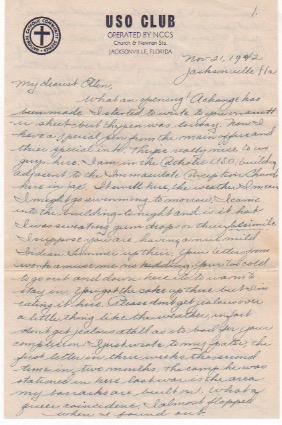 1.
USO CLUB
OPERATED BY NCCS
Church & Newnan Sts.
JACKSONVILLE, FLORIDA
Nov. 21, 1942
Jacksonville Fla
My dearest Ellen,
What an opening! A change has
been made. I started to write to you
in short but the pen was
have a special from the main office and
three special in it. They're really nice to us
guys here. I am in the Catholic USO, building
adjacent to the Immaculate Conception Church
here in Jax. It swell here, the weather I mean
I might go swimming to morrow. I came
into the building to night and is it hot
I was sweating gum drops on their
I suppose you are having a mild
Indian Summer up there. Your letter from
work no kidding. You're told
to go out and down here is to
stay in. You got the coke up there but I'm
eating it here. Please don't get jealous over
a little thing like the weather, in fact
don't get jealous at all as its bad for your
complexion. I just wrote to my father, the
first letter in three weeks, the second
time in two months. The camp he was
stationed in here last war is the area
my barracks are built on. What a
queer coincidence. I almost flopped
when I found out.